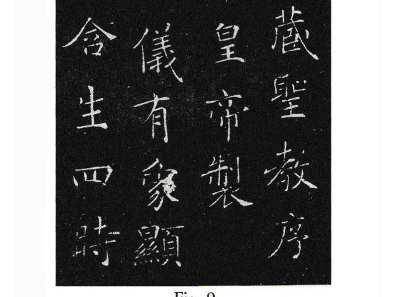 蔵聖教序
皇帝製
儀有象顯
含生四時